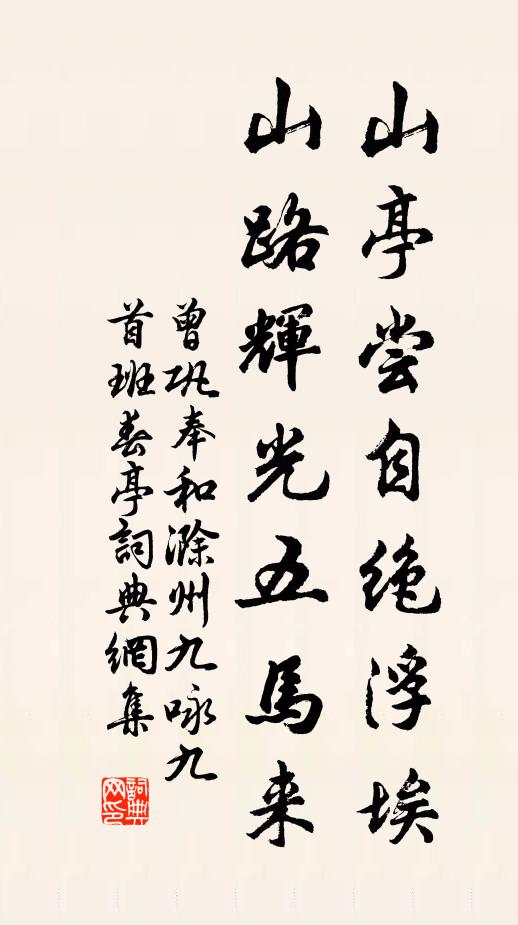 山亭尝自绝浮埃
山路輝光五馬来
曾巩奉和滁州九咏九
首班春亭詞典網集
詞典网印